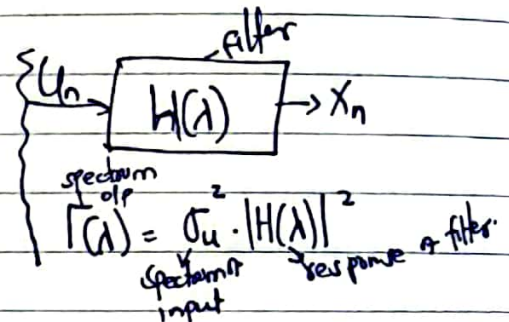 filter
Un H(λ) Xn
spectrum
o/p
Γ(λ) = σu² · |H(λ)|²
spectrum
input
response
filter.